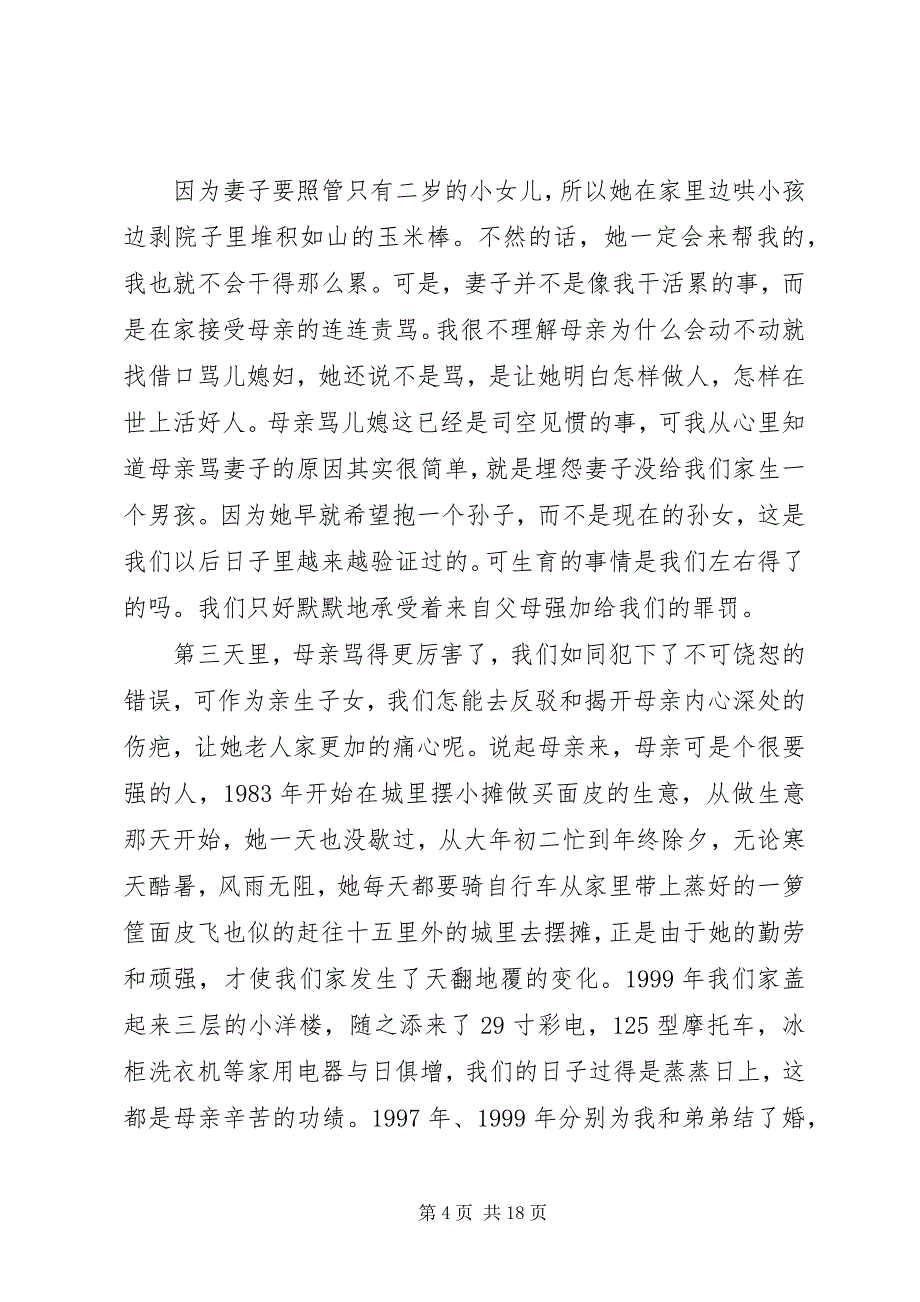 因为妻子要照管只有二岁的小女儿，所以她在家里边哄小孩
边剥院子里堆积如山的玉米棒。不然的话，她一定会来帮我的，
我也就不会干得那么累。可是，妻子并不是像我干活累的事，而
是在家接受母亲的连连责骂。我很不理解母亲为什么会动不动就
找借口骂儿媳妇，她还说不是骂，是让她明白怎样做人，怎样在
世上活好人。母亲骂儿媳这已经是司空见惯的事，可我从心里知
道母亲骂妻子的原因其实很简单，就是埋怨妻子没给我们家生一
个男孩。因为她早就希望抱一个孙子，而不是现在的孙女，这是
我们以后日子里越来越验证过的。可生育的事情是我们左右得了
的吗。我们只好默默地承受着来自父母强加给我们的罪罚。
第三天里，母亲骂得更厉害了，我们如同犯下了不可饶恕的
错误，可作为亲生子女，我们怎能去反驳和揭开母亲内心深处的
伤疤，让她老人家更加的痛心呢。说起母亲来，母亲可是个很要
强的人，1983 年开始在城里摆小摊做买面皮的生意，从做生意
那天开始，她一天也没歇过，从大年初二忙到年终除夕，无论寒
天酷暑，风雨无阻，她每天都要骑自行车从家里带上蒸好的一箩
筐面皮飞也似的赶往十五里外的城里去摆摊，正是由于她的勤劳
和顽强，才使我们家发生了天翻地覆的变化。1999 年我们家盖
起来三层的小洋楼，随之添来了 29 寸彩电，125 型摩托车，冰
柜洗衣机等家用电器与日俱增，我们的日子过得是蒸蒸日上，这
都是母亲辛苦的功绩。1997 年、1999 年分别为我和弟弟结了婚，
第 4 页 共 18 页